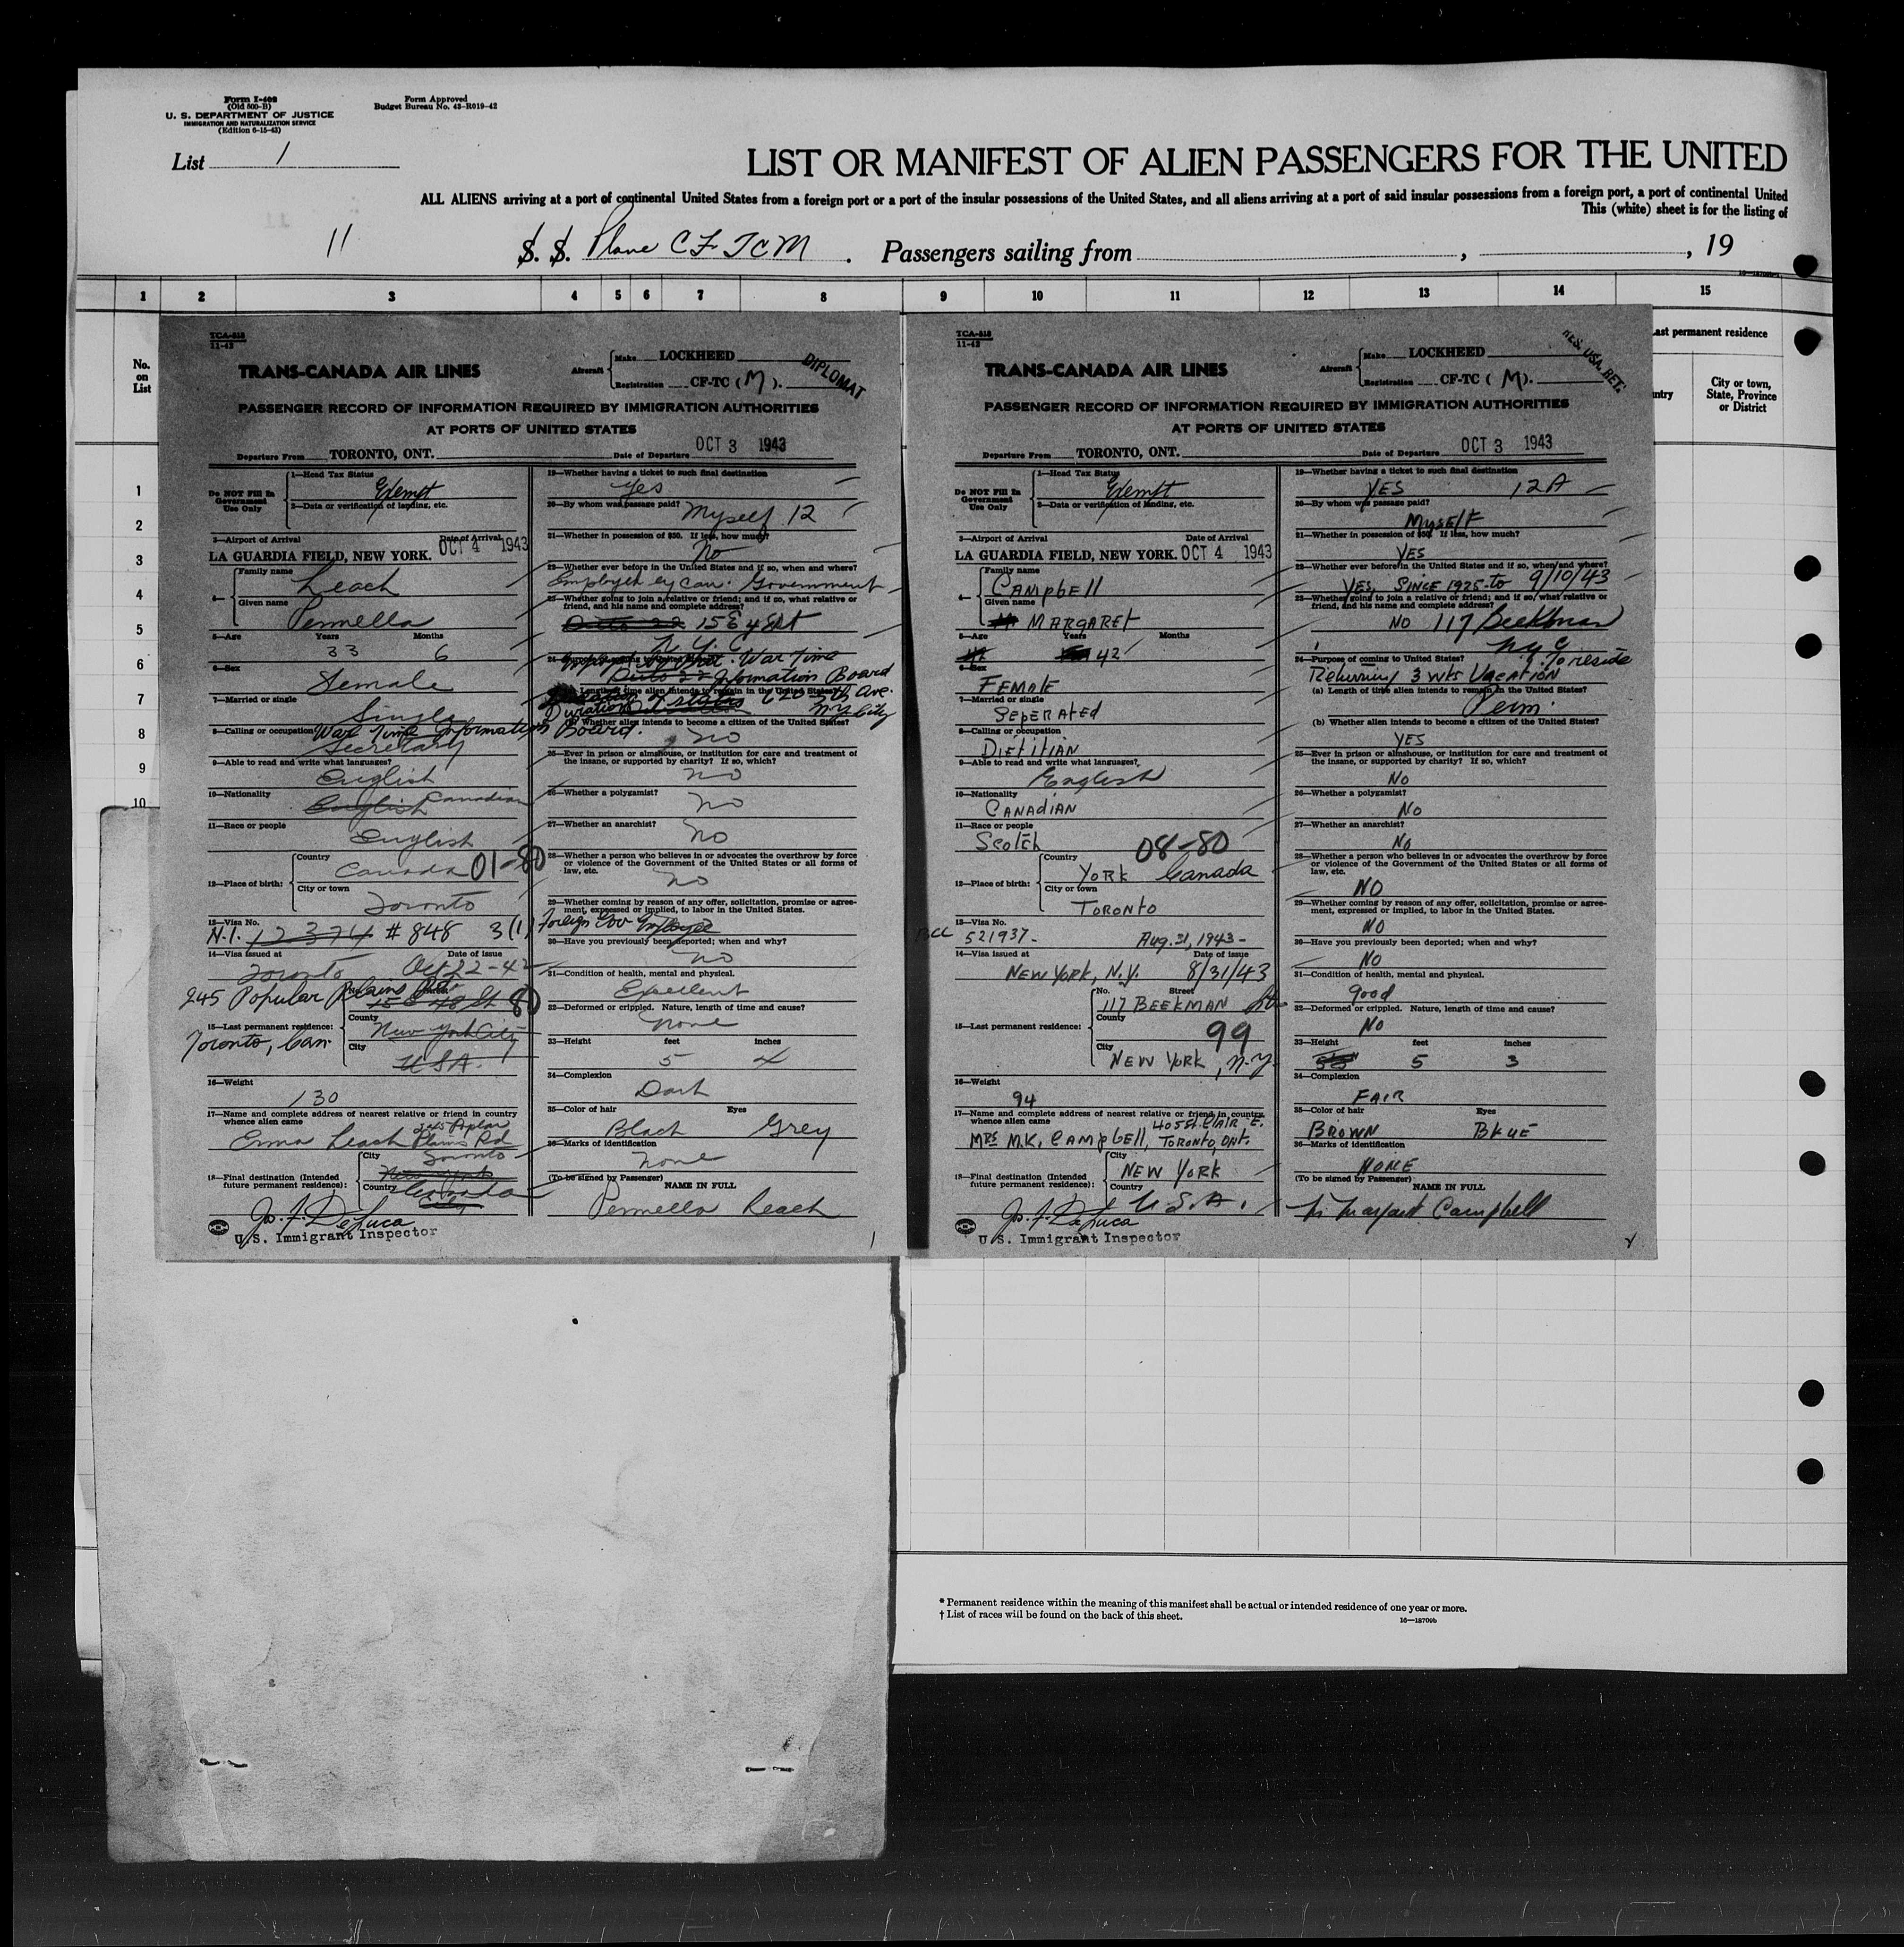 Form I-409
(Old 500-B)
U. S. DEPARTMENT OF JUSTICE
IMMIGRATION AND NATURALIZATION SERVICE
(Edition 6-15-43)
Form Approved
Budget Bureau No. 43-R019-42
List 1
LIST OR MANIFEST OF ALIEN PASSENGERS FOR THE UNITED
ALL ALIENS arriving at a port of continental United States from a foreign port or a port of the insular possessions of the United States, and all aliens arriving at a port of said insular possessions from a foreign port, a port of continental United
This (white) sheet is for the listing of
11
S. S. Plane CF TCM . Passengers sailing from , , 19
1 2 3 4 5 6 7 8 9 10 11 12 13 14 15
No.
on
List
1
2
3
4
5
6
7
8
9
10
TCA-518
11-42
TRANS-CANADA AIR LINES
Aircraft Make LOCKHEED
Registration CF-TC (M).
DIPLOMAT
PASSENGER RECORD OF INFORMATION REQUIRED BY IMMIGRATION AUTHORITIES
AT PORTS OF UNITED STATES
Departure From TORONTO, ONT. Date of Departure OCT 3 1943
Do NOT Fill In
Government
Use Only
1—Head Tax Status
Exempt
2—Data or verification of landing, etc.
3—Airport of Arrival Date of Arrival
LA GUARDIA FIELD, NEW YORK. OCT 4 1943
4— Family name
Leach
Given name
Pennella
5—Age Years Months
33 6
6—Sex
Female
7—Married or single
Single
8—Calling or occupation War Time Information Board.
Secretary
9—Able to read and write what languages?
English
10—Nationality
English Canadian
11—Race or people
English
12—Place of birth:
Country
Canada 01-80
City or town
Toronto
13—Visa No.
N.I. 12374 #848 3(1) Foreign Gov Employee
14—Visa issued at Date of issue
Toronto Oct 22-42
245 Popular Plains Rd
No. Street
15 E 48 St 80
15—Last permanent residence:
County
New York City
Toronto, Can.
City
USA.
16—Weight
130
17—Name and complete address of nearest relative or friend in country
whence alien came
Emma Leach 245 Poplar Plains Rd
18—Final destination (Intended
future permanent residence):
City
Toronto
New York
Country
Canada
Jos. F. DeLuca
U.S. Immigrant Inspector
19—Whether having a ticket to such final destination
Yes
20—By whom was passage paid?
Myself 12
21—Whether in possession of $50. If less, how much?
No
22—Whether ever before in the United States and if so, when and where?
Employed by Can. Government
23—Whether going to join a relative or friend; and if so, what relative or
friend, and his name and complete address?
Ditto 22 15 E 48 St
N.Y.C
24—Purpose of coming to United States?
War Time
Ditto 22 Information Board
(a) Length of time alien intends to remain in the United States?
620-5th Ave.
Duration of status N.Y. City
(b) Whether alien intends to become a citizen of the United States?
no
25—Ever in prison or almshouse, or institution for care and treatment of
the insane, or supported by charity? If so, which?
no
26—Whether a polygamist?
no
27—Whether an anarchist?
no
28—Whether a person who believes in or advocates the overthrow by force
or violence of the Government of the United States or all forms of
law, etc.
no
29—Whether coming by reason of any offer, solicitation, promise or agree-
ment, expressed or implied, to labor in the United States.
30—Have you previously been deported; when and why?
no
31—Condition of health, mental and physical.
Excellent
32—Deformed or crippled. Nature, length of time and cause?
none
33—Height feet inches
5 4
34—Complexion
Dark
35—Color of hair Eyes
Black Grey
36—Marks of identification
none
(To be signed by Passenger) NAME IN FULL
Pennella Leach
1
TCA-518
11-42
TRANS-CANADA AIR LINES
Aircraft Make LOCKHEED
Registration CF-TC (M).
RES. USA. RET.
PASSENGER RECORD OF INFORMATION REQUIRED BY IMMIGRATION AUTHORITIES
AT PORTS OF UNITED STATES
Departure From TORONTO, ONT. Date of Departure OCT 3 1943
Do NOT Fill In
Government
Use Only
1—Head Tax Status
Exempt
2—Data or verification of landing, etc.
3—Airport of Arrival Date of Arrival
LA GUARDIA FIELD, NEW YORK. OCT 4 1943
4— Family name
CAMPbELL
Given name
MARGARET
5—Age Years Months
42
6—Sex
FEMALE
7—Married or single
SEPERATED
8—Calling or occupation
DIETITIAN
9—Able to read and write what languages?
English
10—Nationality
CANADIAN
11—Race or people
Scotch 08-80
12—Place of birth:
Country
YORK Canada
City or town
TORONTO
13—Visa No.
521937- Aug. 31, 1943-
14—Visa issued at Date of issue
NEW YORK, N.Y. 8/31/43
No. Street
117 BEEKMAN St
15—Last permanent residence:
County
99
City
NEW YORK, N.Y.
16—Weight
94
17—Name and complete address of nearest relative or friend in country
whence alien came 40 St. CLAIR E.
MRS M.K. CAMPbELL, TORONTO, ONT.
18—Final destination (Intended
future permanent residence):
City
NEW YORK
Country
U.S.A.
Jos. F. DeLuca
U.S. Immigrant Inspector
19—Whether having a ticket to such final destination
YES 12A
20—By whom was passage paid?
MYSELF
21—Whether in possession of $50. If less, how much?
YES
22—Whether ever before in the United States and if so, when and where?
YES, SINCE 1925-to 9/10/43
23—Whether going to join a relative or friend; and if so, what relative or
friend, and his name and complete address?
NO 117 Beekman
NYC
24—Purpose of coming to United States? To reside
Returning 3 wks VACATION
(a) Length of time alien intends to remain in the United States?
Perm.
(b) Whether alien intends to become a citizen of the United States?
YES
25—Ever in prison or almshouse, or institution for care and treatment of
the insane, or supported by charity? If so, which?
No
26—Whether a polygamist?
No
27—Whether an anarchist?
No
28—Whether a person who believes in or advocates the overthrow by force
or violence of the Government of the United States or all forms of
law, etc.
NO
29—Whether coming by reason of any offer, solicitation, promise or agree-
ment, expressed or implied, to labor in the United States.
NO
30—Have you previously been deported; when and why?
NO
31—Condition of health, mental and physical.
good
32—Deformed or crippled. Nature, length of time and cause?
No
33—Height feet inches
5 3
34—Complexion
FAIR
35—Color of hair Eyes
BROWN BLUE
36—Marks of identification
NONE
(To be signed by Passenger) NAME IN FULL
M. Margaret Campbell
Last permanent residence
City or town,
State, Province
or District
* Permanent residence within the meaning of this manifest shall be actual or intended residence of one year or more.
† List of races will be found on the back of this sheet.
16—18709b